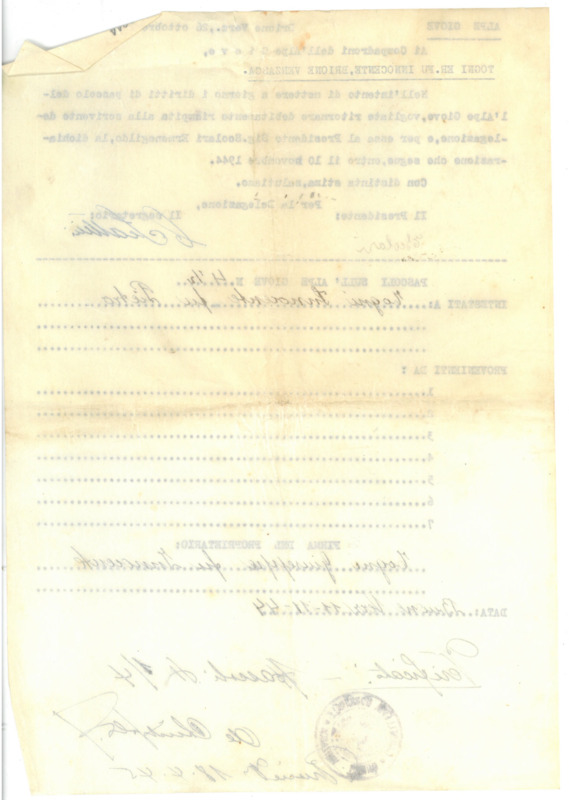 ALPE GIOVE
Corione Verz., 26 ottobre
Ai Compadroni dell'Alpe G i o v e,
TOGNI ER. FU INNOCENTE, BRIONE VERZASCA.
Nell'intento di mettere a giorno i diritti di pascolo del-
l'Alpe Giove, vogliate ritornare debitamente riempita alla scrivente de-
legazione, e per essa al Presidente Sig. Scolari Ermenegildo, la dichia-
razione che segue, entro il 10 novembre 1944.
Con distinta stima, salutiamo.
Per la Delegazione,
Il Presidente: Il Segretario:
PASCOLI DELL' ALPE GIOVE N.
INTESTATI A: Togni Innocente fu Pietro
PROVENIENTI DA :
1.
2.
3.
4.
5.
6.
7.
FIRMA DEL PROPRIETARIO:
Togni Giuseppe fu Innocente
DATA:
Verificati: - pascoli